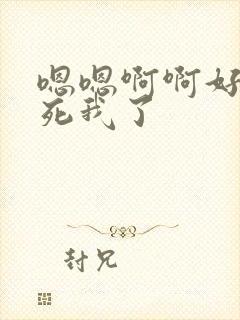 嗯嗯啊啊好
死我了
封兄